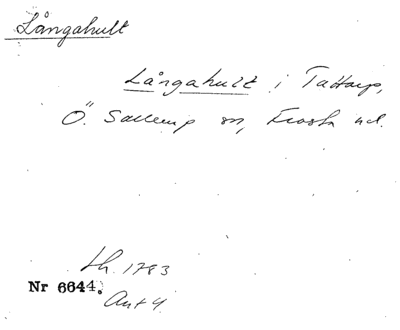 Långahult
Långahult i Tattarp,
Ö. Sallerup sn, Frosta hd.
lh. 1783
Nr 6644.
Ant 4